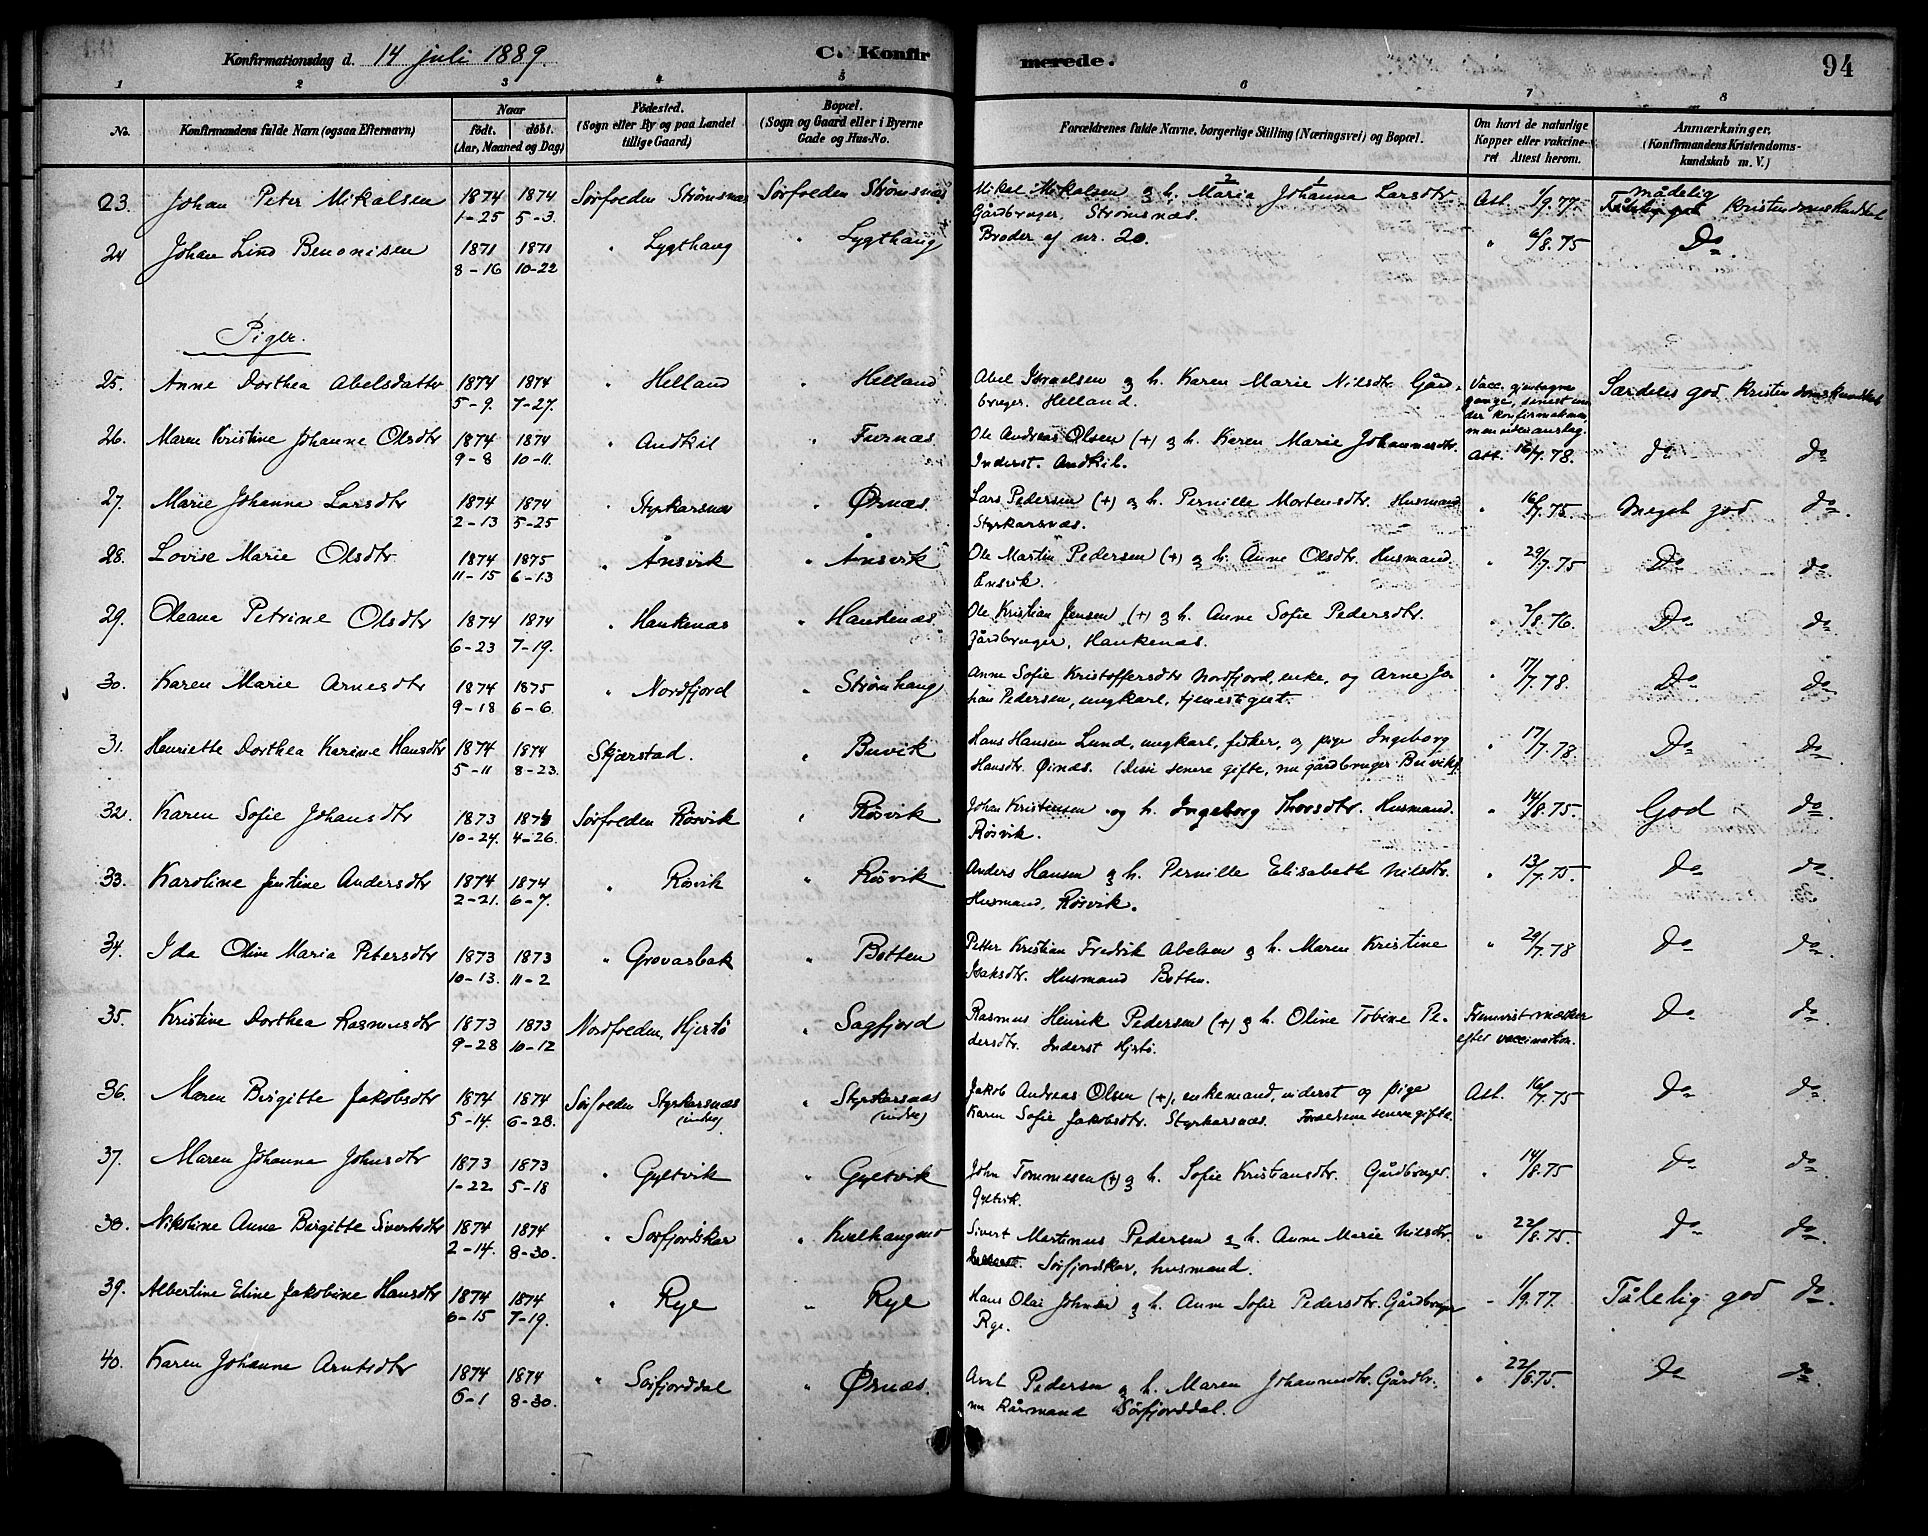 Konfirmationsdag d. 14 juli 1889. C. Konfirmerede. 94
1 2 3 4 5 6 7 8
No. Konfirmandens fulde Navn (ogsaa Efternavn) Naar født. døbt. (Aar, Maaned og Dag) Fødested. (Sogn eller By og paa Landet tillige Gaard) Bopæl. (Sogn og Gaard eller i Byerne Gade og Hus-No. Forældrenes fulde Navne, borgerlige Stilling (Næringsvei) og Bopæl. Om havt de naturlige Kopper eller vaccineret Attest herom. Anmærkninger, (Konfirmandens Kristendomskundskab m. V.)
23. Johan Peter Mikalsen 1874 1-25 1874 5-3. Sørfolden Strømsnæs Sørfolden Strømsnæs Mikal Mikalsen & h. Maria Johanna Larsdtr. 2 1
Gårdbruger, Strømsnæs. Att. 1/9.77. mådelig Kristendomskundskab
24 Johan Lind Benonisen 1871 8-16 1871 10-22 " Lygthaug " Lygthaug Broder af nr. 20. " 6/8.75 Do
Piger.
25. Anne Dorthea Abelsdatter 1874 5-9. 1874 7-27. " Helland " Helland Abel Israelsen & h. Karen Marie Nilsdtr. Gård-
bruger. Helland. Vacc. gjentagne gange, senest under konfirmationen, men uden anslag. Særdeles god Kristendomskundskab
26. Maren Kristine Johanne Olsdtr 1874 9-8 1874 10-11. " Andkil " Furnæs Ole Andreas Olsen (+) & h. Karen Marie Johannesdtr.
Inderst. Andkil. Att. 16/7.78. do do
27. Marie Johanna Larsdtr 1874 2-13 1874 5-25 " Styrkarsnæs " Ørnæs. Lars Pedersen (+) & h. Pernille Mortensdtr. Husmand
Styrkarsnæs. " 16/7.75 Meget god do
28. Lovise Marie Olsdtr 1874 11-15 1875 6-13 " Ånsvik " Ånsvik Ole Martin Pedersen (+) & h. Anne Olsdtr. Husmand.
Ånsvik. " 29/7.75 Do do
29. Oleane Petrine Olsdtr 1874 6-23 1874 7-19. " Hankenæs " Ole Kristian Jensen (+) & h. Anne Sofie Pedersdtr.
Gårdbruger, Hankenæs. " 2/8.76. Do do
30. Karen Marie Arnesdtr 1874 9-18 1875 6-6. " Nordfjord " Strømhaug Anne Sofie Kristoffersdtr Nordfjord, enke, og Arne Jo-
han Pedersen, ungkarl, tjenestgut. " 17/7.78. Do do
31. Henriette Dorthea Karine Hansdtr 1874 5-11 1874 8-23. Skjærstad. " Buvik Hans Hansen Lund, ungkarl, fisker, og pige Ingeborg
Hansdtr. Øinæs. (Disse senere gifte, nu gårdbruger Buvik) " 17/7.78 Do do
32. Karen Sofie Johansdtr 1873 10-24. 4-26. Sørfolden Røsvik " Røsvik Johan Kristensen og h. Ingeborg Thorsdtr. Husmand.
Røsvik. " 14/8.75. God do
33. Karoline Jentine Andersdtr 1874 2-21. 1874 6-7. " Røsvik " Røsvik Anders Hansen & h. Pernille Elisabeth Nilsdtr.
Husmand, Røsvik. " 13/7.75. Do do
34. Ida Oline Maria Petersdtr 1873 10-13. 1873 11-2 " Grovasbak " Botten Petter Kristian Fredrik Abelsen & h. Maren Kristine
Isaksdtr. Husmand Botten. " 29/7.78 Do do
35. Kristine Dorthea Rasmusdtr 1873 9-28 1873 10-12 Nordfolden, Hjertø " Sagfjord Rasmus Henrik Pedersen (+) & h. Oline Tobine Pe-
dersdtr. Inderst Hjertø. Fremvist mærker efter vaccination. Do do
36. Maren Birgitte Jakobsdtr 1874 5-14. 1874 6-28. Sørfolden Styrkarsnæs (indre) " Styrkarsnæs (indre) Jakob Andreas Olsen (+), enkemand, inderst og pige
Karen Sofie Jakobsdtr. Styrkarsnæs. Forældrene senere gifte. Att. 16/7.75 Do do
37. Maren Johanna Johnsdtr 1873 1-22 1873 5-18 " Gyltvik " Gyltvik John Tommesen (+) & h. Sofie Kristiansdtr. Gårdbruger.
Gyltvik. " 14/8.75 Do do
38. Nikoline Anna Birgitte Sivertsdtr 1874 2-14. 1874 8-30. " Sørfjordskar " Kvalhaugmo Sivert Martinus Pedersen & h. Anne Marie Nilsdtr.
Sørfjordskar, husmand. " 22/8.75. Do do
39. Albertine Eline Jakobine Hansdtr 1874 6-15 1874 7-19. " Rye " Rye Hans Olai Johnsen & h. Anne Sofie Pedersdtr. Gårdbruger
Rye. " 1/9.77. Tålelig god do
40. Karen Johanne Arntsdtr 1874 6-1 1874 8-30. " Sørfjorddal " Ørnæs. Arnt Pedersen & h. Maren Johannesdtr. Gårdbr.
nu kårmand Sørfjorddal. " 22/8.75. Do do